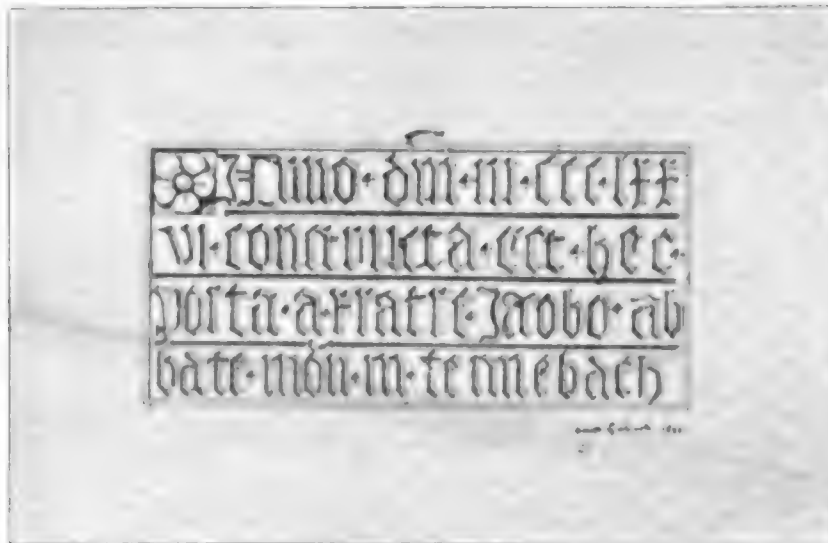 Anno · dm · m · ccc · lxx
vi · constructa · est · hec ·
porta · a · fratre · Jacobo · ab
bate · mon · in · tennebach